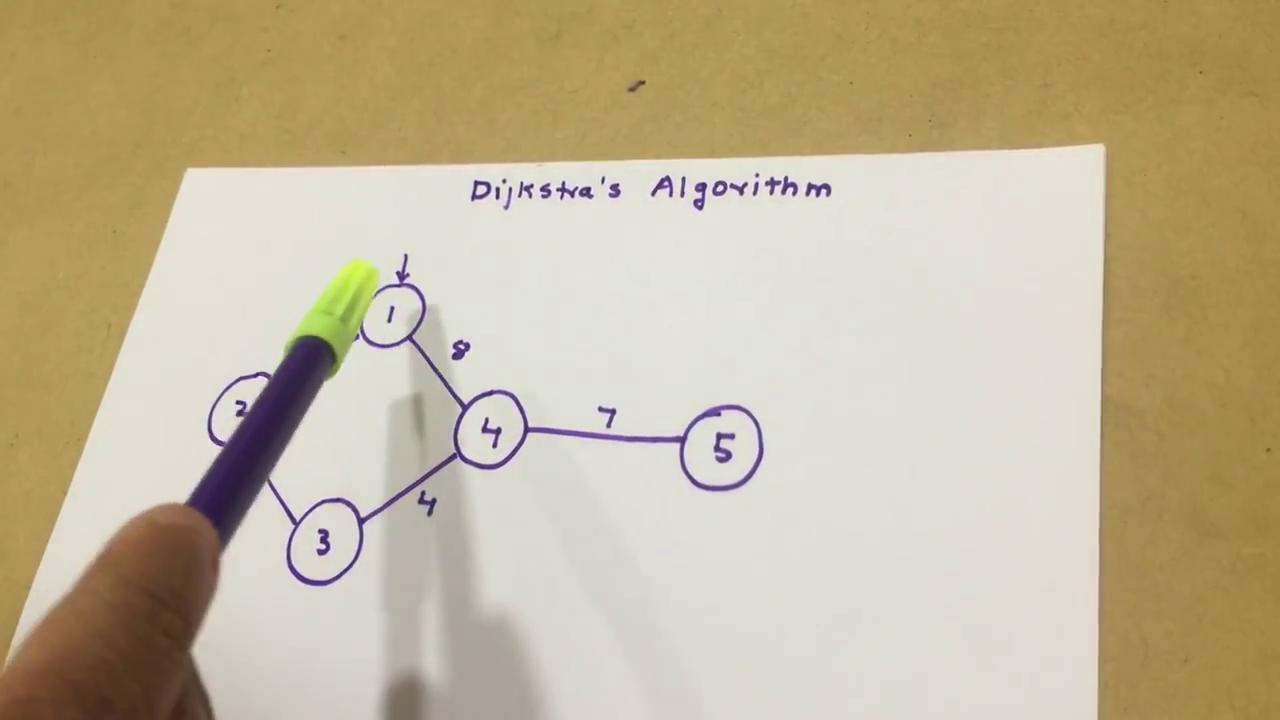 Dijkstra's Algorithm
1
8
2
4
7
5
4
3